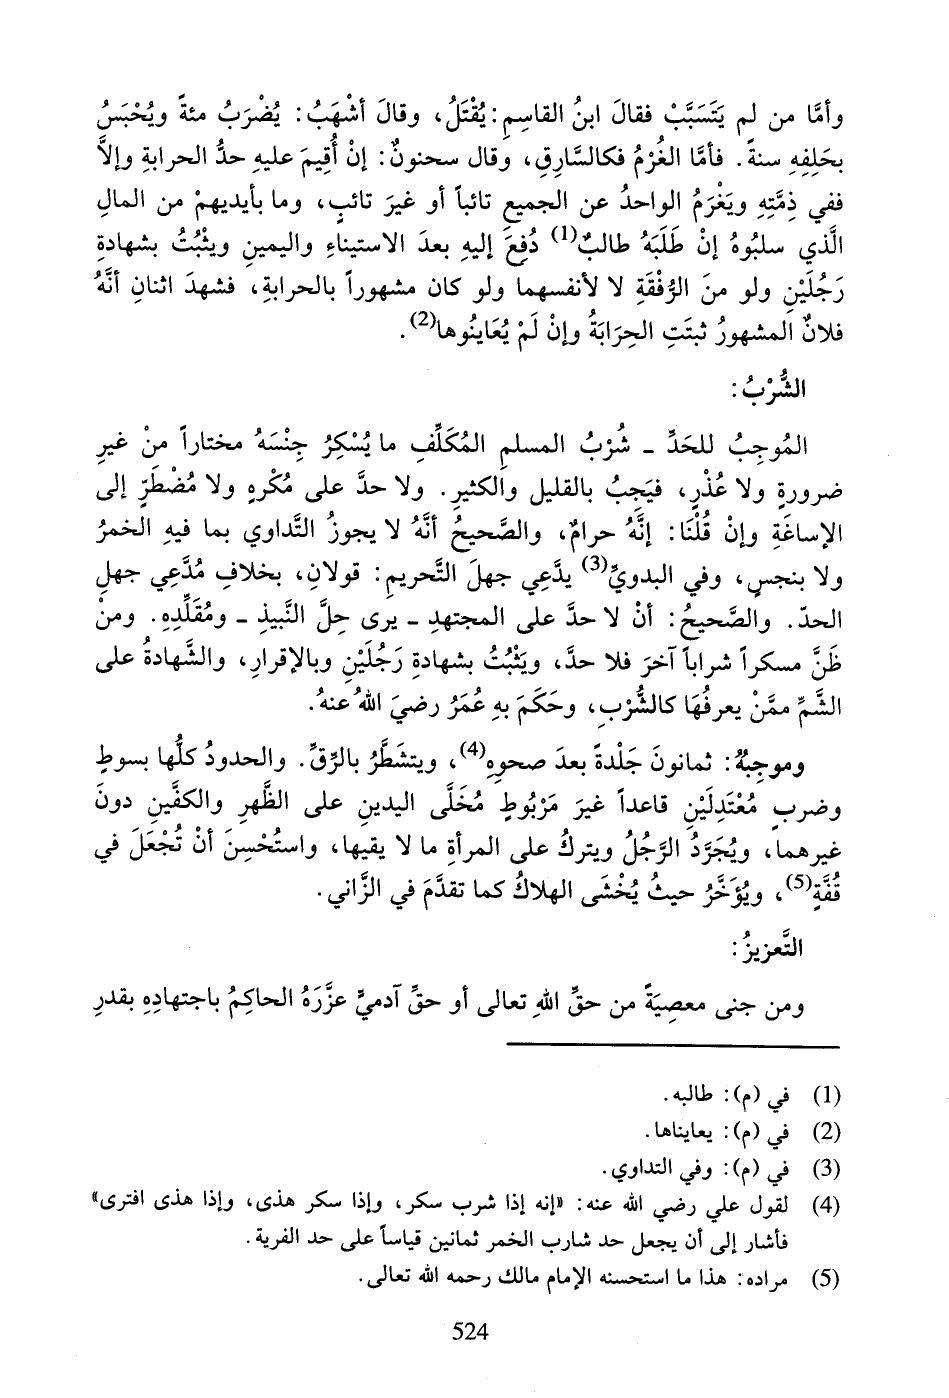 وأمَّا من لم يَتَسَبَّبْ فقالَ ابنُ القاسِمِ: يُقْتَلُ، وقالَ أشْهَبُ: يُضْرَبُ مئةً ويُحْبَسُ
بحَلِفِهِ سنةً. فأمَّا الغُرْمُ فكالسَّارِقِ، وقال سحنونٌ: إنْ أُقِيمَ عليهِ حدُّ الحرابةِ وإلاَّ
ففي ذِمَّتِهِ ويَغْرَمُ الواحدُ عن الجميعِ تائباً أو غيرَ تائبٍ، وما بأيديهمْ من المالِ
الَّذي سلبُوهُ إنْ طَلَبَهُ طالبٌ(1) دُفِعَ إليهِ بعدَ الاستيناءِ واليمينِ ويثْبُتُ بشهادةِ
رَجُلَيْنِ ولو منَ الرُّفْقَةِ لا لأنفسهما ولو كان مشهوراً بالحرابةِ، فشهدَ اثنانِ أنَّهُ
فلانٌ المشهورُ ثبتَتِ الحِرَابَةُ وإنْ لَمْ يُعَاينُوها(2).
الشُّرْبُ:
المُوجِبُ للحَدِّ ـ شُرْبُ المسلمِ المُكَلَّفِ ما يُسْكِرُ جِنْسَهُ مختاراً منْ غيرِ
ضرورةٍ ولا عُذْرٍ، فيَجِبُ بالقليلِ والكثيرِ. ولا حدَّ على مُكْرهٍ ولا مُضْطَرّ إلى
الإساغَةِ وإنْ قُلْنَا: إنَّهُ حرامٌ، والصَّحيحُ أنَّهُ لا يجوزُ التَّداوي بما فيهِ الخمرُ
ولا بنجسٍ، وفي البدويِّ(3) يدَّعِي جهلَ التَّحريمِ: قولانِ، بخلافِ مُدَّعِي جهلِ
الحدّ. والصَّحيحُ: أنْ لا حدَّ على المجتهدِ ـ يرى حِلَّ النَّبيذِ ـ ومُقَلِّدِهِ. ومنْ
ظَنَّ مسكراً شراباً آخرَ فلا حدَّ، ويَثْبُتُ بشهادةِ رَجُلَيْنِ وبالإقرارِ، والشَّهادةُ على
الشَّمِّ ممَّنْ يعرفُهَا كالشُّرْبِ، وحَكَمَ بهِ عُمَرُ رضيَ اللهُ عنهُ.
وموجبُهُ: ثمانونَ جَلْدةً بعدَ صحوِهِ(4)، ويتشَطَّرُ بالرِّقِّ. والحدودُ كلُّها بسوطٍ
وضربٍ مُعْتَدِلَيْنِ قاعداً غيرَ مَرْبُوطٍ مُخَلَّى اليدينِ على الظَّهرِ والكفَّينِ دونَ
غيرهما، ويُجَرَّدُ الرَّجُلُ ويتركُ على المرأةِ ما لا يقيها، واستُحْسِنَ أنْ تُجْعَلَ في
قُفَّةٍ(5)، ويُؤَخَّرُ حيثُ يُخْشَى الهلاكُ كما تقدَّمَ في الزَّاني.
التَّعزيزُ:
ومن جنى معصِيَةً من حقِّ اللهِ تعالى أو حقِّ آدميٍّ عزَّرَهُ الحاكِمُ باجتهادِهِ بقدرِ
(1) في (م): طالبه.
(2) في (م): يعايناها.
(3) في (م): وفي التداوي.
(4) لقول علي رضي الله عنه: «إنه إذا شرب سكر، وإذا سكر هذى، وإذا هذى افترى»
فأشار إلى أن يجعل حد شارب الخمر ثمانين قياساً على حد الفرية.
(5) مراده: هذا ما استحسنه الإمام مالك رحمه الله تعالى.
524